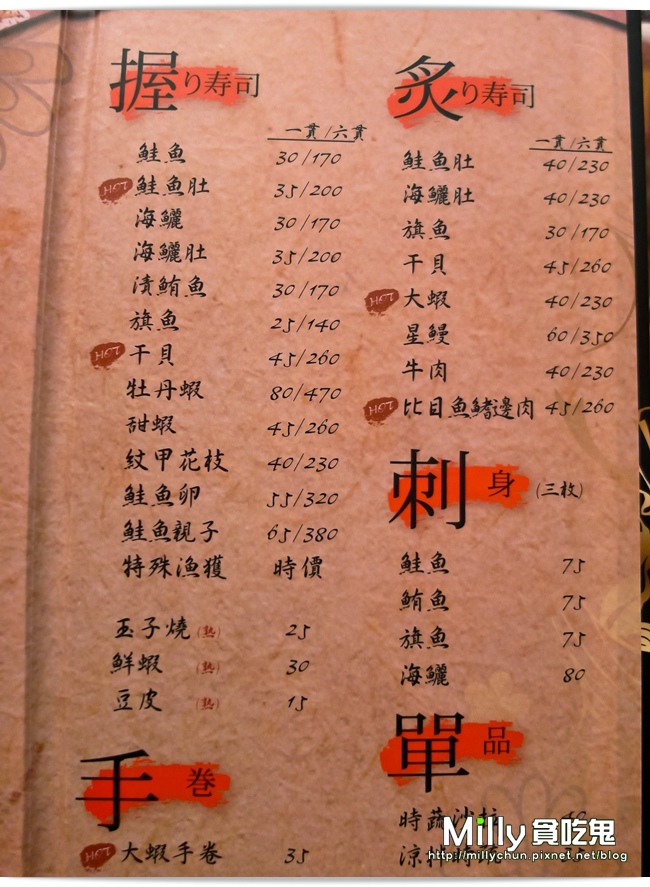 握り寿司
一貫/六貫
鮭魚 30/170
HOT 鮭魚肚 35/200
海鱺 30/170
海鱺肚 35/200
漬鮪魚 30/170
旗魚 25/140
HOT 干貝 45/260
牡丹蝦 80/470
甜蝦 45/260
紋甲花枝 40/230
鮭魚卵 55/320
鮭魚親子 65/380
特殊漁獲 時價
玉子燒(熟) 25
鮮蝦(熟) 30
豆皮(熟) 15
手卷
HOT 大蝦手卷 35
炙り寿司
一貫/六貫
鮭魚肚 40/230
海鱺肚 40/230
旗魚 30/170
干貝 45/260
HOT 大蝦 40/230
星鰻 60/350
牛肉 40/230
HOT 比目魚鰭邊肉 45/260
刺身(三枚)
鮭魚 75
鮪魚 75
旗魚 75
海鱺 80
單品
時蔬沙拉
涼拌
Milly貪吃鬼
http://millychun.pixnet.net/blog